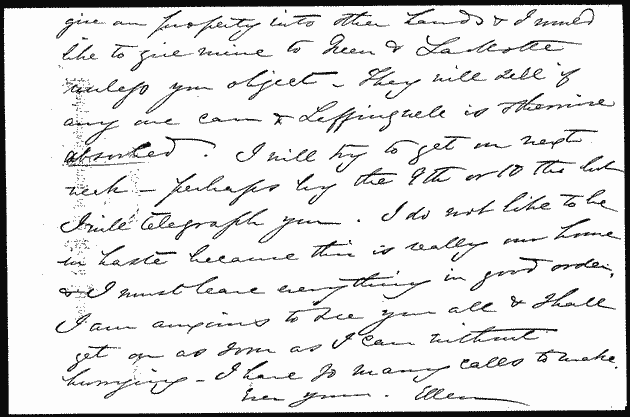 give our property into other hands & I would
like to give mine to Green & LaMotte
unless you object - They will sell if
any one can & Leffingwell is otherwise
absorbed. I will try to get on next
week - perhaps by the 9th or 10th but
I will telegraph you. I do not like to be
in haste because this is really our home
& I must leave everything in good order.
I am anxious to see you all & shall
get on as soon as I can without
hurrying - I have so many calls to make.
Ever yours. Ellen